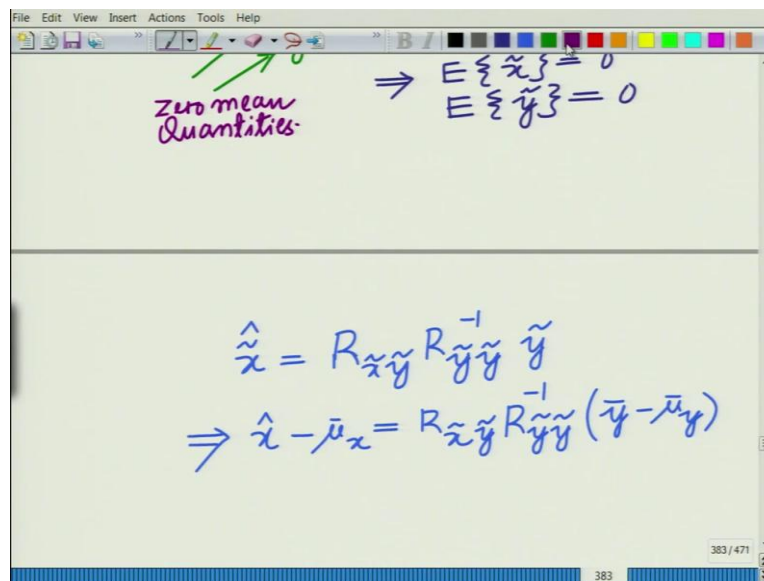 File Edit View Insert Actions Tools Help
B I
zero mean
Quantities.
⇒ E{x̃} = 0
E{ỹ} = 0
x̃̂ = R_{x̃ỹ} R_{ỹỹ}^{-1} ỹ
⇒ x̂ - μ̄_x = R_{x̃ỹ} R_{ỹỹ}^{-1} (ȳ - μ̄_y)
383/471
383